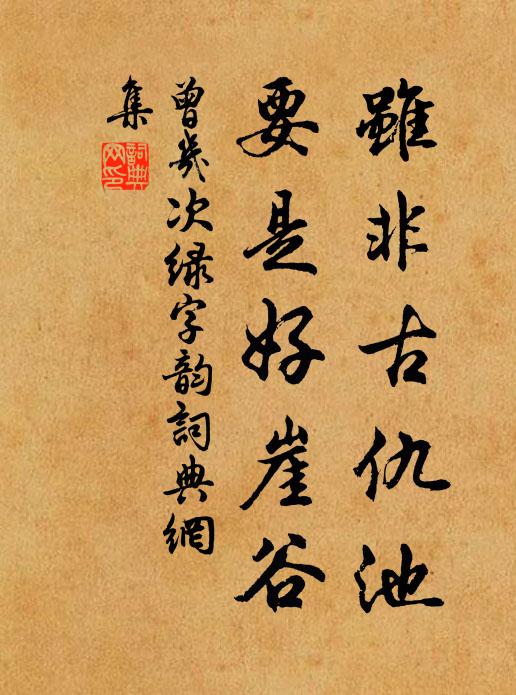 雖非古仇池
要是好崖谷
曾幾次緑字韵詞典網
集
詞典
网印